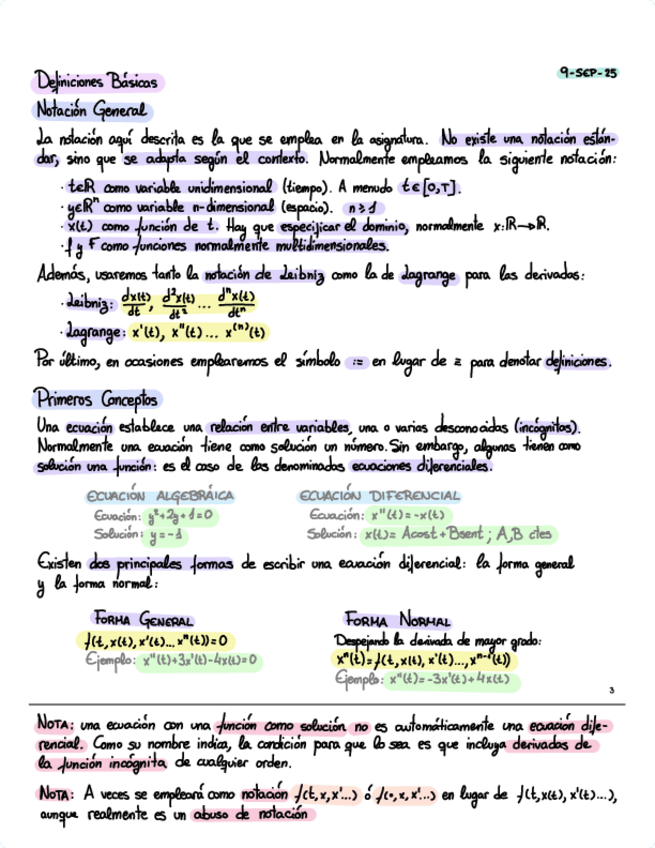 9-SEP-25
Definiciones Básicas
Notación General
La notación aquí descrita es la que se emplea en la asignatura. No existe una notación están-
dar, sino que se adapta según el contexto. Normalmente empleamos la siguiente notación:
· t∈ℝ como variable unidimensional (tiempo). A menudo t∈[0,T].
· y∈ℝⁿ como variable n-dimensional (espacio). n≥1
· x(t) como función de t. Hay que especificar el dominio, normalmente x:ℝ→ℝ.
· f y F como funciones normalmente multidimensionales.
Además, usaremos tanto la notación de Leibniz como la de Lagrange para las derivadas:
· Leibniz: dx(t)/dt, d²x(t)/dt² ... dⁿx(t)/dtⁿ
· Lagrange: x'(t), x''(t) ... x⁽ⁿ⁾(t)
Por último, en ocasiones emplearemos el símbolo := en lugar de ≡ para denotar definiciones.
Primeros Conceptos
Una ecuación establece una relación entre variables, una o varias desconocidas (incógnitas).
Normalmente una ecuación tiene como solución un número. Sin embargo, algunas tienen como
solución una función: es el caso de las denominadas ecuaciones diferenciales.
ECUACIÓN ALGEBRÁICA ECUACIÓN DIFERENCIAL
Ecuación: y²+2y+1=0 Ecuación: x''(t)=-x(t)
Solución: y=-1 Solución: x(t)= Acost+Bsent ; A,B ctes
Existen dos principales formas de escribir una ecuación diferencial: la forma general
y la forma normal:
FORMA GENERAL FORMA NORMAL
Despejando la derivada de mayor grado:
f(t, x(t), x'(t)... xⁿ(t))=0 xⁿ(t)=f(t, x(t), x'(t)..., xⁿ⁻¹(t))
Ejemplo: x''(t)+3x'(t)-4x(t)=0 Ejemplo: x''(t)=-3x'(t)+4x(t)
3
NOTA: una ecuación con una función como solución no es automáticamente una ecuación dife-
rencial. Como su nombre indica, la condición para que lo sea es que incluya derivadas de
la función incógnita de cualquier orden.
NOTA: A veces se empleará como notación f(t,x,x'...) ó f(·,x,x'...) en lugar de f(t,x(t),x'(t)...),
aunque realmente es un abuso de notación